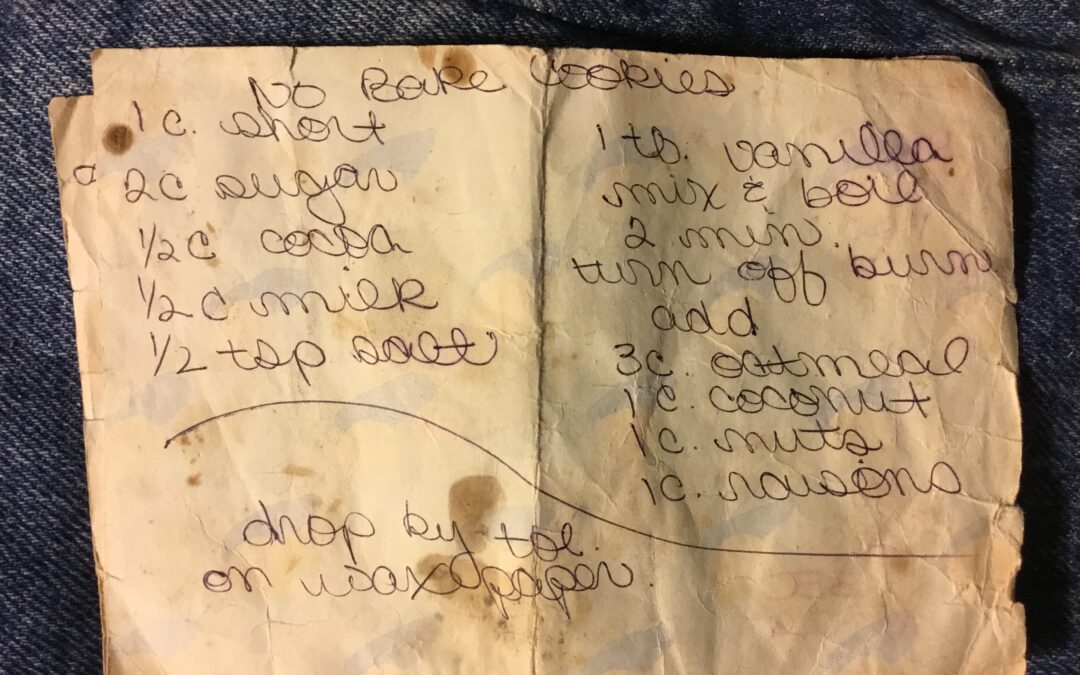 No Bake Cookies
1 c. short
2c sugar
1/2 c cocoa
1/2 c milk
1/2 tsp salt
1 ts. vanilla
mix & boil
2 min.
turn off burn
add
3c. oatmeal
1 c. coconut
1 c. nuts
1c. raisons
drop by tbl.
on wax paper.